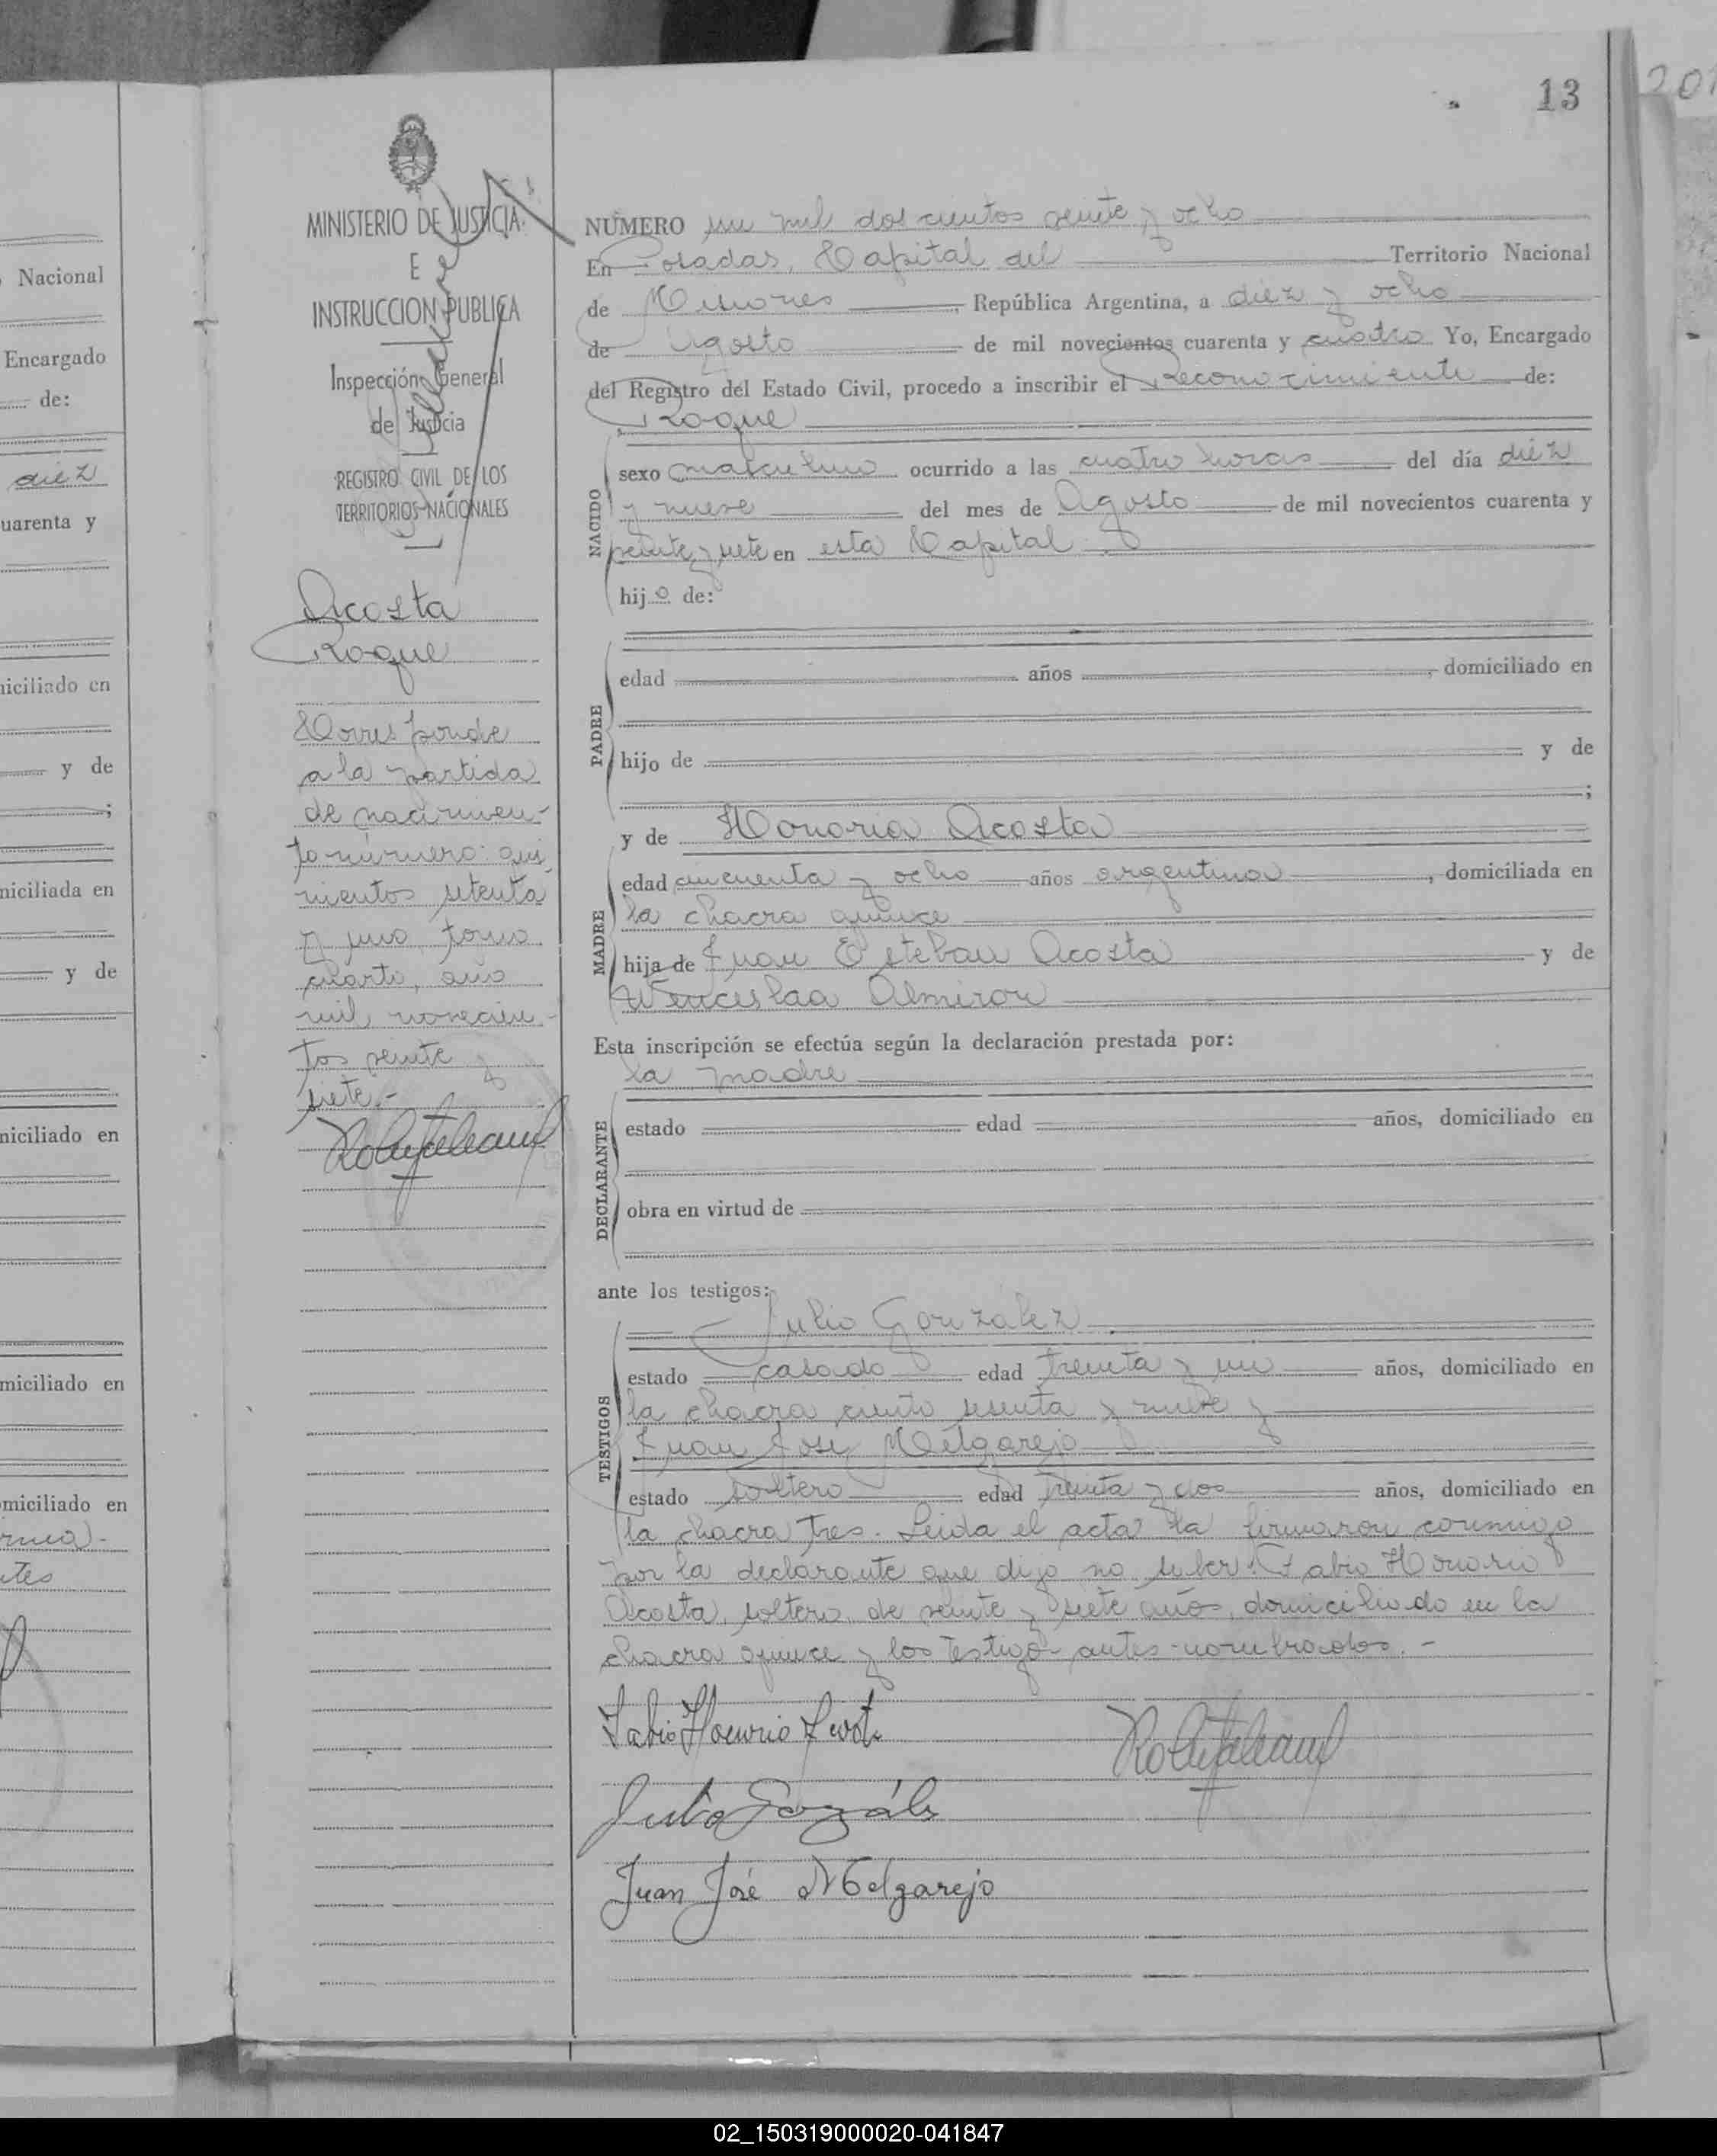 13
201
MINISTERIO DE JUSTICIA
E
INSTRUCCION PUBLICA
Inspección General
de Justicia
REGISTRO CIVIL DE LOS
TERRITORIOS NACIONALES
Acosta
Roque
Corresponde
a la partida
de nacimien-
to número qui
nientos setenta
y uno, tomo
cuarto, año
mil novecien-
tos veinte y
siete.-
NÚMERO un mil doscientos veinte y ocho
En Posadas, Capital del Territorio Nacional
de Misiones, República Argentina, a diez y ocho
de Agosto de mil novecientos cuarenta y cuatro Yo, Encargado
del Registro del Estado Civil, procedo a inscribir el Reconocimiento de:
Roque
NACIDO
sexo masculino ocurrido a las cuatro horas del día diez
y nueve del mes de Agosto de mil novecientos cuarenta y
veinte y siete en esta Capital
hijo de:
PADRE
edad años, domiciliado en
hijo de y de
;
MADRE
y de Honoria Acosta
edad cincuenta y ocho años argentina, domiciliada en
la chacra quince
hija de Juan Esteban Acosta y de
Wenceslaa Almiron
Esta inscripción se efectúa según la declaración prestada por:
la madre
DECLARANTE
estado edad años, domiciliado en
obra en virtud de
ante los testigos:
TESTIGOS
Julio González
estado casado edad treinta y un años, domiciliado en
la chacra ciento sesenta y nueve y
Juan José Melgarejo
estado soltero edad treinta y dos años, domiciliado en
la chacra tres. Leida el acta la firmaron conmigo
por la declarante que dijo no saber: Fabio Honorio
Acosta, soltero, de veinte y siete años, domiciliado en la
chacra quince y los testigos antes nombrados.-
Fabio Honorio Acosta
Julio González
Juan José Melgarejo
Nacional
Encargado
de:
diez
uarenta y
niciliado en
y de
;
niciliada en
y de
niciliado en
miciliado en
miciliado en
02_150319000020-041847